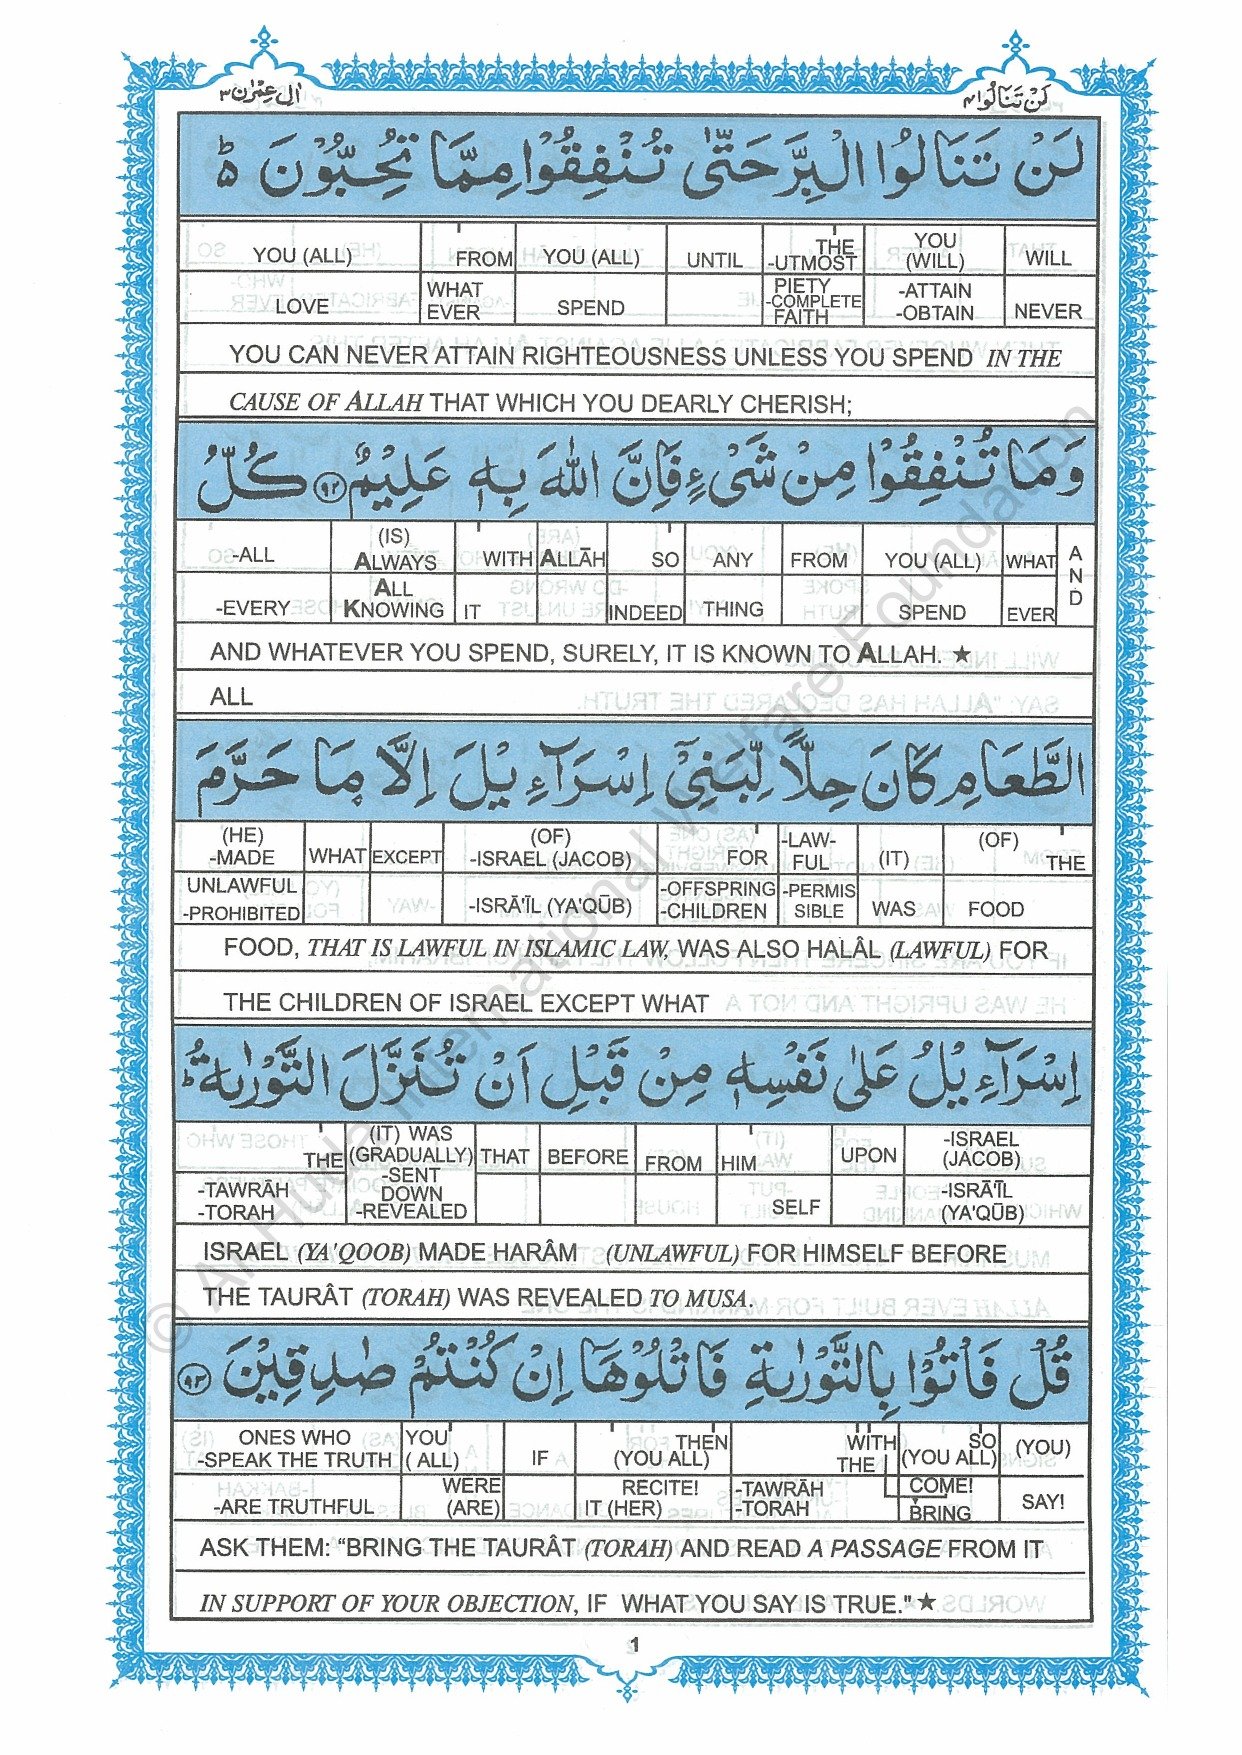 اٰل عِمْرٰن ٣
لَنْ تَنَالُوا ٤
لَنْ تَنَالُوا الْبِرَّ حَتّٰى تُنْفِقُوْا مِمَّا تُحِبُّوْنَ ؕ
YOU (ALL) FROM YOU (ALL) UNTIL THE -UTMOST YOU (WILL) WILL
LOVE WHAT EVER SPEND PIETY -COMPLETE FAITH -ATTAIN -OBTAIN NEVER
YOU CAN NEVER ATTAIN RIGHTEOUSNESS UNLESS YOU SPEND IN THE
CAUSE OF ALLAH THAT WHICH YOU DEARLY CHERISH;
وَمَا تُنْفِقُوْا مِنْ شَىْءٍ فَاِنَّ اللّٰهَ بِهٖ عَلِيْمٌ ﴿٩٢﴾ كُلُّ
-ALL (IS) ALWAYS WITH ALLĀH SO ANY FROM YOU (ALL) WHAT AND
-EVERY ALL KNOWING IT INDEED THING SPEND EVER
AND WHATEVER YOU SPEND, SURELY, IT IS KNOWN TO ALLAH. ★
ALL
الطَّعَامِ كَانَ حِلًّا لِّبَنِىْٓ اِسْرَآءِيْلَ اِلَّا مَا حَرَّمَ
(HE) -MADE WHAT EXCEPT (OF) -ISRAEL (JACOB) FOR -LAW-FUL (IT) (OF) THE
UNLAWFUL -PROHIBITED -ISRĀ'ĪL (YA'QŪB) -OFFSPRING -CHILDREN -PERMIS SIBLE WAS FOOD
FOOD, THAT IS LAWFUL IN ISLAMIC LAW, WAS ALSO HALÂL (LAWFUL) FOR
THE CHILDREN OF ISRAEL EXCEPT WHAT
اِسْرَآءِيْلُ عَلٰى نَفْسِهٖ مِنْ قَبْلِ اَنْ تُنَزَّلَ التَّوْرٰىةُ ؕ
THE (IT) WAS (GRADUALLY) THAT BEFORE FROM HIM UPON -ISRAEL (JACOB)
-TAWRĀH -TORAH -SENT DOWN -REVEALED SELF -ISRĀ'ĪL (YA'QŪB)
ISRAEL (YA'QOOB) MADE HARÂM (UNLAWFUL) FOR HIMSELF BEFORE
THE TAURÂT (TORAH) WAS REVEALED TO MUSA.
قُلْ فَاْتُوْا بِالتَّوْرٰىةِ فَاتْلُوْهَا اِنْ كُنْتُمْ صٰدِقِيْنَ ﴿٩٣﴾
ONES WHO -SPEAK THE TRUTH YOU (ALL) IF THEN (YOU ALL) WITH THE SO (YOU ALL) (YOU)
-ARE TRUTHFUL WERE (ARE) RECITE! IT (HER) -TAWRĀH -TORAH COME! BRING SAY!
ASK THEM: “BRING THE TAURÂT (TORAH) AND READ A PASSAGE FROM IT
IN SUPPORT OF YOUR OBJECTION, IF WHAT YOU SAY IS TRUE." ★
1
© Al Huda International Welfare Foundation